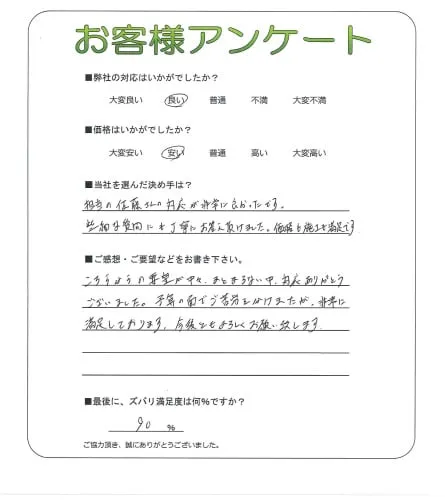 お客様アンケート
■弊社の対応はいかがでしたか?
大変良い 良い 普通 不満 大変不満
■価格はいかがでしたか?
大変安い 安い 普通 高い 大変高い
■当社を選んだ決め手は?
担当の佐藤さんの対応が非常に良かったです。
些細な質問にも丁寧にお答え頂けました。価格も施工も満足です
■ご感想・ご要望などをお書き下さい。
こちらからの要望が中々、まとまらない中、対応ありがとう
ございました。予算の面でご苦労をかけましたが、非常に
満足しております。今後ともよろしくお願い致します。
■最後に、ズバリ満足度は何%ですか?
90 %
ご協力頂き、誠にありがとうございました。